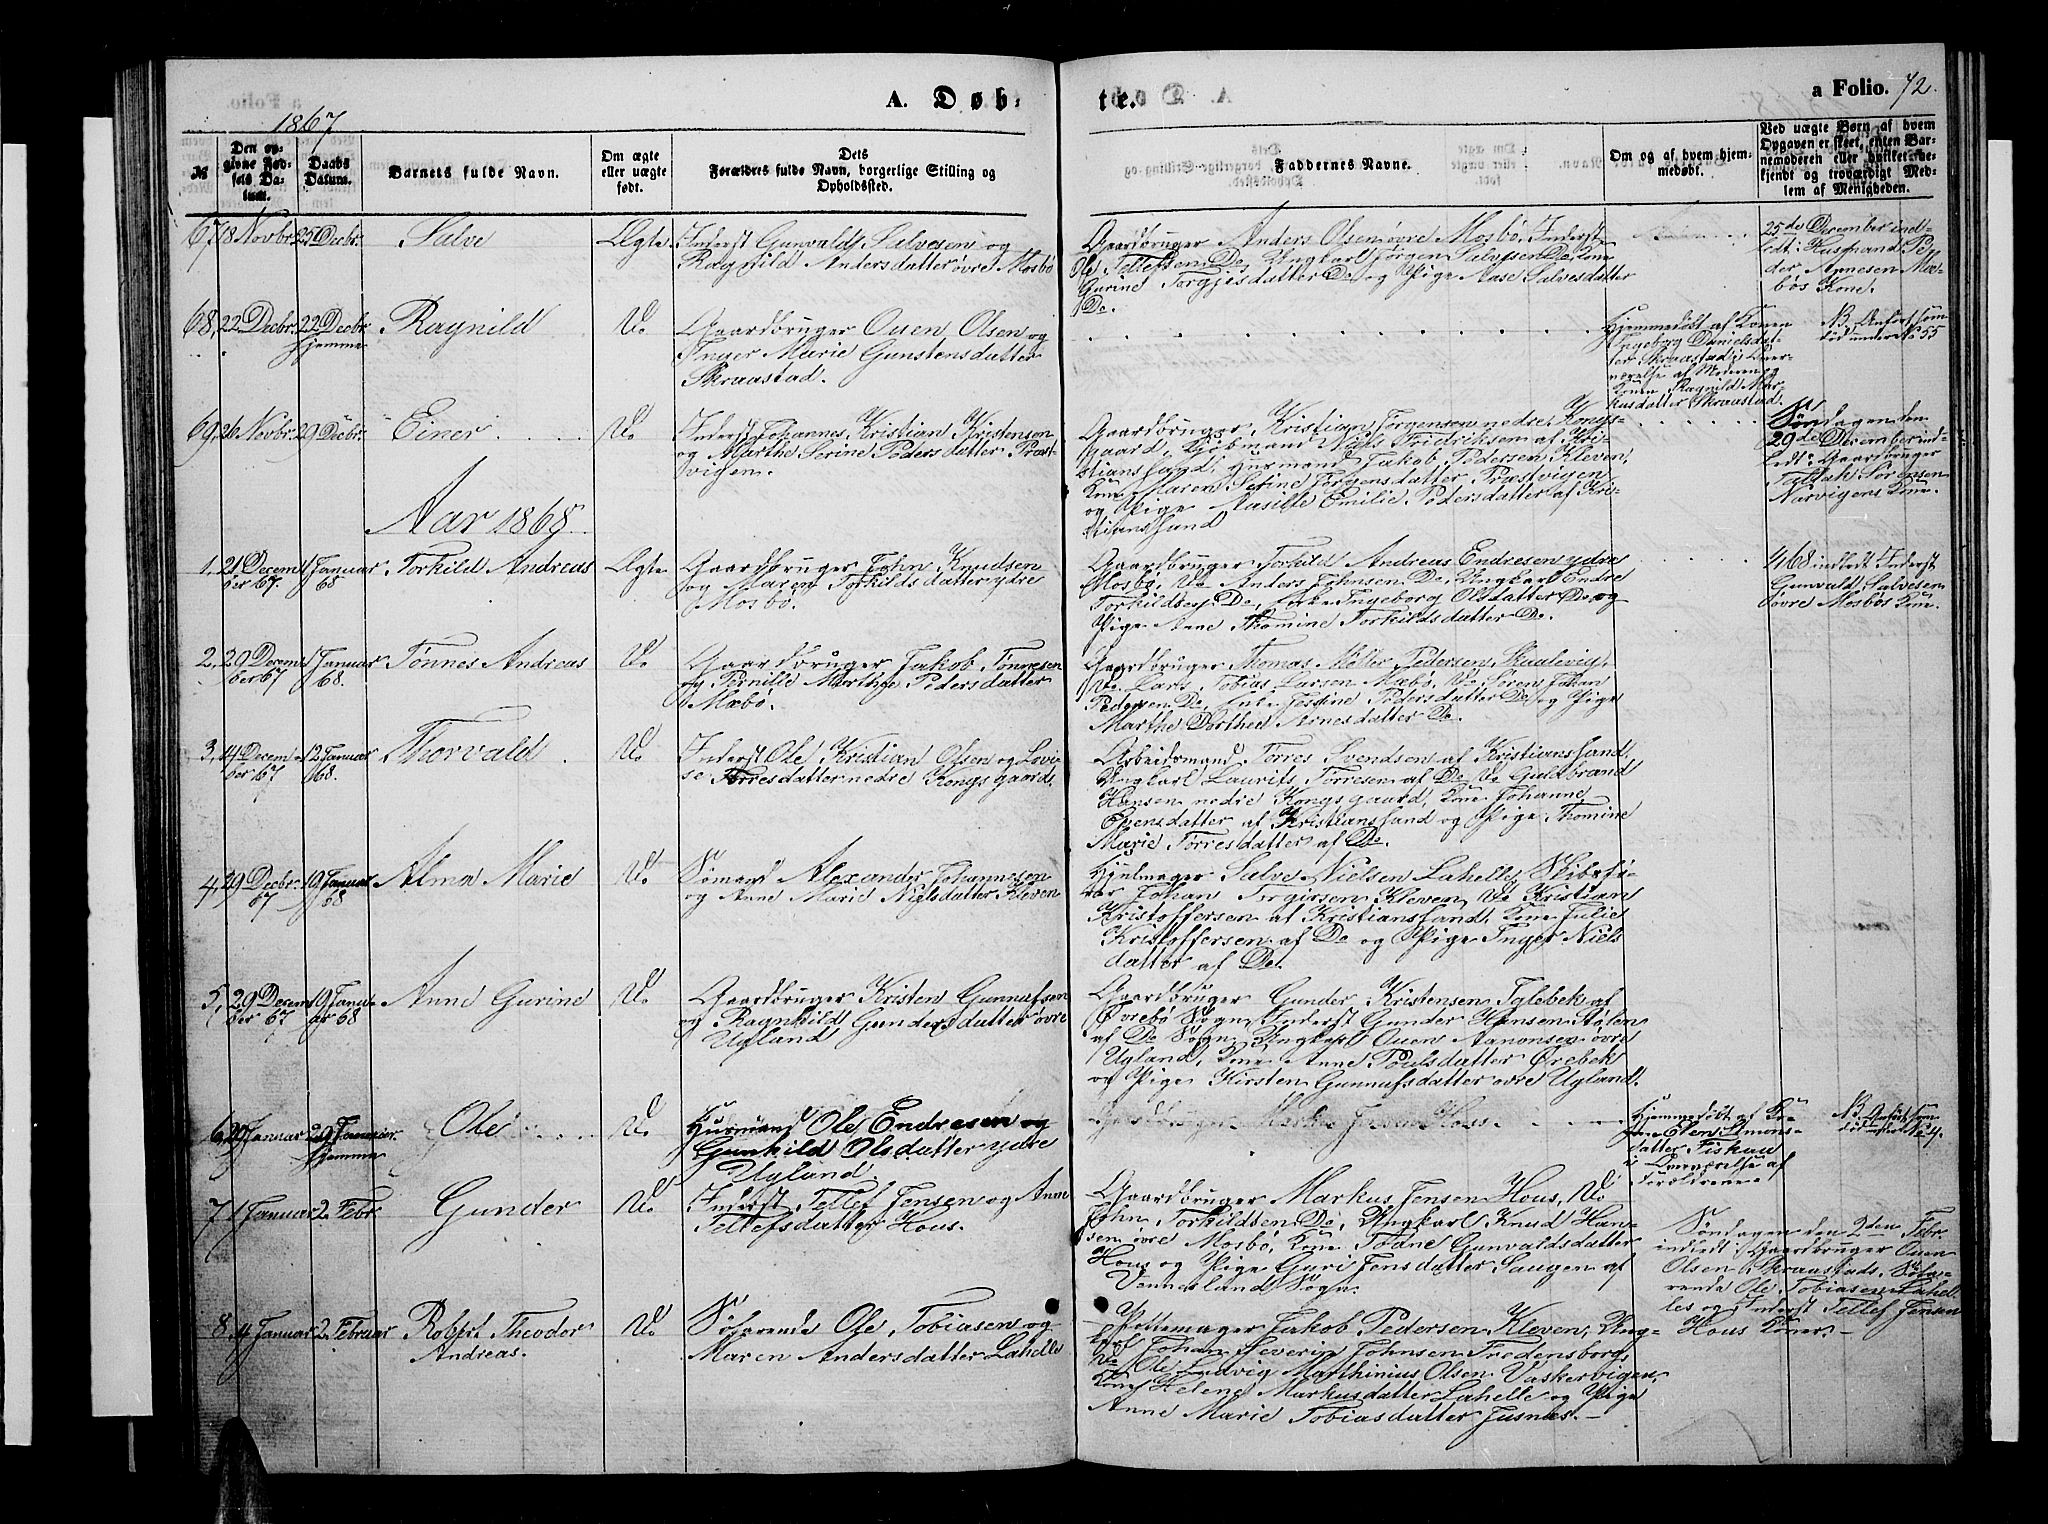 A. Døb- te. a Folio. 72.
1867
№
Den op-
givne Fød-
sels Da-
tum.
Daabs
Datum.
Barnets fulde Navn.
Om ægte
eller uægte
født.
Dets
Forældres fulde Navn, borgerlige Stilling og
Opholdssted.
Faddernes Navne.
Om og af hvem hjem-
medøbt.
Ved uægte Børn af hvem
Opgaven er skeet, enten Bar-
nemoderen eller hvilket be-
kjendt og troværdigt Med-
lem af Menigheden.
67 18 Novbr. 25 Decbr. Salve Ægte
Inderst Gunvald Salvesen og
Ragnild Andersdatter øvre Mosbö
Gaardbruger Anders Olsen øvre Mosbö, Inderst
Ole Tellefsen Do, Ungkarl Jörgen Salvesen Do, Kone
Gurine Torgjesdatter Do og Pige Aase Salvesdatter
Do.
25de December ind-
ledt: Husmand Pe-
der Arnesen Mos-
bös Kone.
68, 22 Decbr. 22 Decbr. Ragnild Do
hjemme
Gaardbruger Ouen Olsen og
Inger Marie Gunstensdatter
Skraastad.
Hjemmedöbt af Konen
Ingeborg Danielsdat-
ter Skraastad i Over-
værelse af Moderen og
Konen Ragnild Mar-
kusdatter Skraastad.
NB. Anfört som
död under No 55
69, 26 Novbr. 29 Decbr. Einer Do
Inderst Johannes Kristian Kristensen
og Marthe Serine Pedersdatter Præst-
vigen.
Gaardbruger Kristian Jörgensen nedre Kongs-
gaard, Kjöbmand Niels Fridriksen af Kri-
stianssand, Husmand Jakob Pedersen Kleven,
Kone Maren Serine Jörgensdatter Præstvigen
og Pige Aasille Emilie Pedersdatter af Kri-
stianssand
Söndagen den
29de December ind-
ledt: Gaardbruger
Tallak Sörensen
Narvigens Kone.
Aar 1868
1, 21 Decem- 1 Januar Torkild Andreas Ægte
ber 67. 68
Gaardbruger John Knudsen
og Maren Torkildsdatter ydre
Mosbö.
Gaardbruger Torkild Andreas Endresen ydre
Mosbö, Do Anders Johnsen Do, Ungkarl Endre
Torkildsen Do, Enke Ingeborg Olsdatter Do og
Pige Anne Thomine Torkildsdatter Do.
68 indledt Inderst
Gunvald Salvesen
øvre Mosbös Kone.
2, 29 Decem- 1 Januar Tönnes Andreas Do
ber 67 68.
Gaardbruger Jakob Tönnesen
og Pernille Marthe Pedersdatter
Mæbö.
Gaardbruger Thomas Möller Pedersen Skaalevig,
Do Lars Tobias Larsen Mæbö, Do Sören Johan
Pedersen Do, Enke Jessine Pedersdatter Do og Pige
Marthe Dorthea Arnesdatter Do.
3, 4 Decem- 12 Januar Thorvald Do
ber 67 68.
Inderst Ole Kristian Olsen og Lovi-
se Torresdatter nedre Kongsgaard.
Arbeidsmand Törres Svendsen af Kristianssand,
Ungkarl Laurits Törresen af Do, Do Guldbrand
Hansen nedre Kongsgaard, Kone Johanne
Evensdatter af Kristianssand og Pige Thomine
Marie Torresdatter af Do.
4, 29 Decbr. 19 Januar Alma Marie Do
67 68
Sömand Alexander Johannesen
og Anne Marie Nielsdatter Kleven
Hjulmager Salve Nielsen Lahelle, Skibsfö-
rer Johan Tergiesen Kleven, Do Kristian
Kristoffersen af Kristianssand, Kone Julie
Kristoffersen af Do og Pige Inger Niels
datter af Do.
5, 29 Decem- 19 Janu- Anne Gurine Do
ber 67 ar 68
Gaardbruger Kristen Gunnufsen
og Ragnhild Gundersdatter øvre
Ugland
Gaardbruger Gunder Kristensen Iglebek af
Øvrebö Sogn, Inderst Gunder Hansen Stölen
af Do Sogn, Ungkarl Ouen Aanonsen øvre
Ugland, Kone Anne Poulsdatter Örebek
og Pige Kirsten Gunnufsdatter øvre Ugland.
6, Januar 29 Januar Ole Do
hjemme
Husmand Ole Endresen og
Gunhild Olsdatter ydre
Ugland
Gaardbruger Markus Jensen Hous.
Hjemmedöbt af Ko-
nen Elen Simons-
datter Fiskaa
i Overværelse af
Forældrene
NB. Anfört som
död under No 4.
7, 1 Januar 2 Febr. Gunder Do
Inderst Tellef Jensen og Anne
Tellefsdatter Hous.
Gaardbruger Markus Jensen Hous, Do
John Torkildsen Do, Ungkarl Knud Han-
sen øvre Mosbö, Kone Todne Gunvaldsdatter
Hous og Pige Guri Jensdatter Saugen af
Vennesland Sogn.
Söndagen den 2den Febr
indledt: Gaardbruger Ouen
Olsen Skraastads, Söfa-
rende Ole Tobiasen Lahel-
les og Inderst Tellef Jensen
Hous Koner.
8, 4 Januar 2 Februar Robert Theodor Do
Andreas.
Söfarende Ole Tobiasen og
Maren Andersdatter Lahelle
Pottemager Jakob Pedersen Kleven, Ung-
karl Johan Severin Johnsen Fredensborg,
Do Ole Ludvig Matthinius Olsen Vaskervigen,
Kone Helene Markusdatter Lahelle og Pige
Anne Marie Tobiasdatter Jusnes.